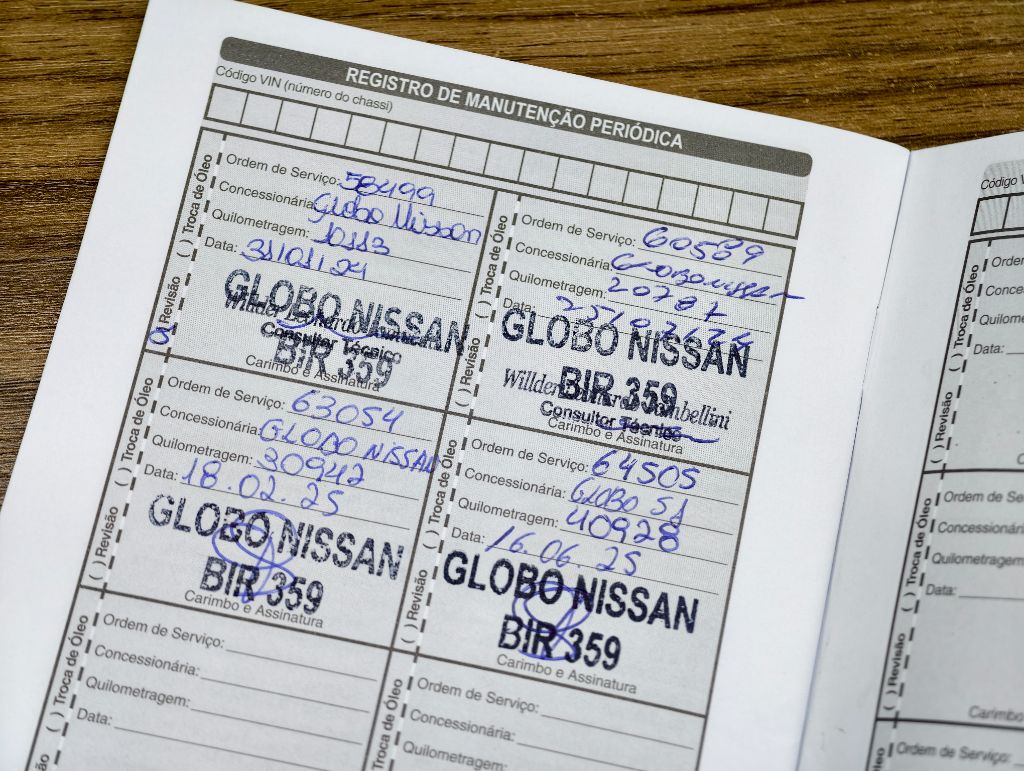 REGISTRO DE MANUTENÇÃO PERIÓDICA
Código VIN (número do chassi)
( ) Revisão ( ) Troca de Óleo
Ordem de Serviço: 58499
Concessionária: Globo Nissan
Quilometragem: 10113
Data: 31/01/24
GLOBO NISSAN
Consultor Técnico
BIR 359
Carimbo e Assinatura
( ) Revisão ( ) Troca de Óleo
Ordem de Serviço: 60589
Concessionária: Globo Nissan
Quilometragem: 20787
Data:
GLOBO NISSAN
BIR 359
Consultor Técnico
Carimbo e Assinatura
( ) Revisão ( ) Troca de Óleo
Ordem de Serviço: 63054
Concessionária: GLOBO NISSAN
Quilometragem: 30942
Data: 18.02.25
GLOBO NISSAN
BIR 359
Carimbo e Assinatura
( ) Revisão ( ) Troca de Óleo
Ordem de Serviço: 64505
Concessionária: GLOBO S1
Quilometragem: 40928
Data: 16.06.25
GLOBO NISSAN
BIR 359
Carimbo e Assinatura
( ) Troca de Óleo
Ordem de Serviço:
Concessionária:
Quilometragem:
Data:
Troca de Óleo
Ordem de Serviço:
Concessionária:
Quilometragem:
Código
( ) Revisão ( ) Troca de Óleo
Data:
( ) Revisão ( ) Troca de Óleo
Ordem de
Concessionária:
Quilometragem:
Data:
Carimbo
Ordem de Serviço: